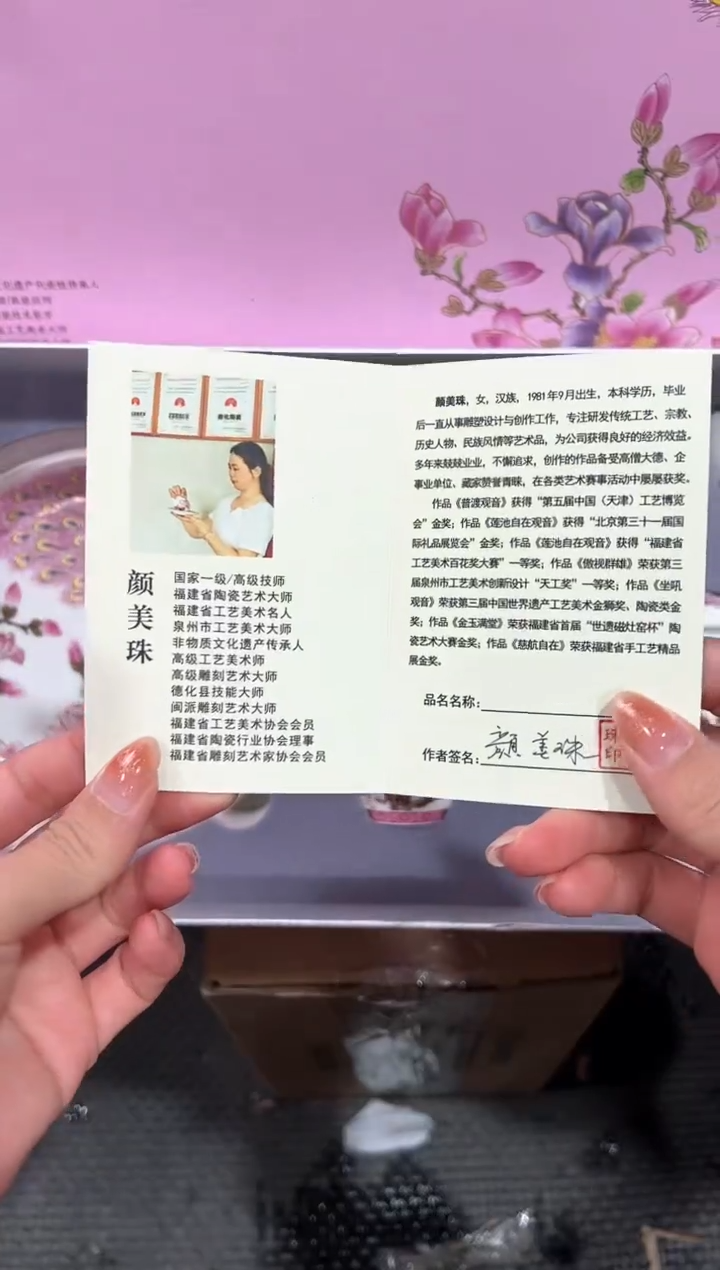 颜美珠
国家一级/高级技师
福建省陶瓷艺术大师
福建省工艺美术名人
泉州市工艺美术大师
非物质文化遗产传承人
高级工艺美术师
高级雕刻艺术大师
德化县技能大师
闽派雕刻艺术大师
福建省工艺美术协会会员
福建省陶瓷行业协会理事
福建省雕刻艺术家协会会员
颜美珠，女，汉族，1981年9月出生，本科学历，毕业
后一直从事雕塑设计与创作工作，专注研发传统工艺、宗教、
历史人物、民族风情等艺术品，为公司获得良好的经济效益。
多年来兢兢业业，不懈追求，创作的作品备受高僧大德、企
事业单位、藏家赞誉青睐，在各类艺术赛事活动中屡屡获奖。
作品《普渡观音》获得“第五届中国（天津）工艺博览
会”金奖；作品《莲池自在观音》获得“北京第三十一届国
际礼品展览会”金奖；作品《莲池自在观音》获得“福建省
工艺美术百花奖大赛”一等奖；作品《傲视群雄》荣获第三
届泉州市工艺美术创新设计“天工奖”一等奖；作品《坐吼
观音》荣获第三届中国世界遗产工艺美术金狮奖、陶瓷类金
奖；作品《金玉满堂》荣获福建省首届“世遗磁灶窑杯”陶
瓷艺术大赛金奖；作品《慈航自在》荣获福建省手工艺精品
展金奖。
品名名称：
作者签名：颜美珠